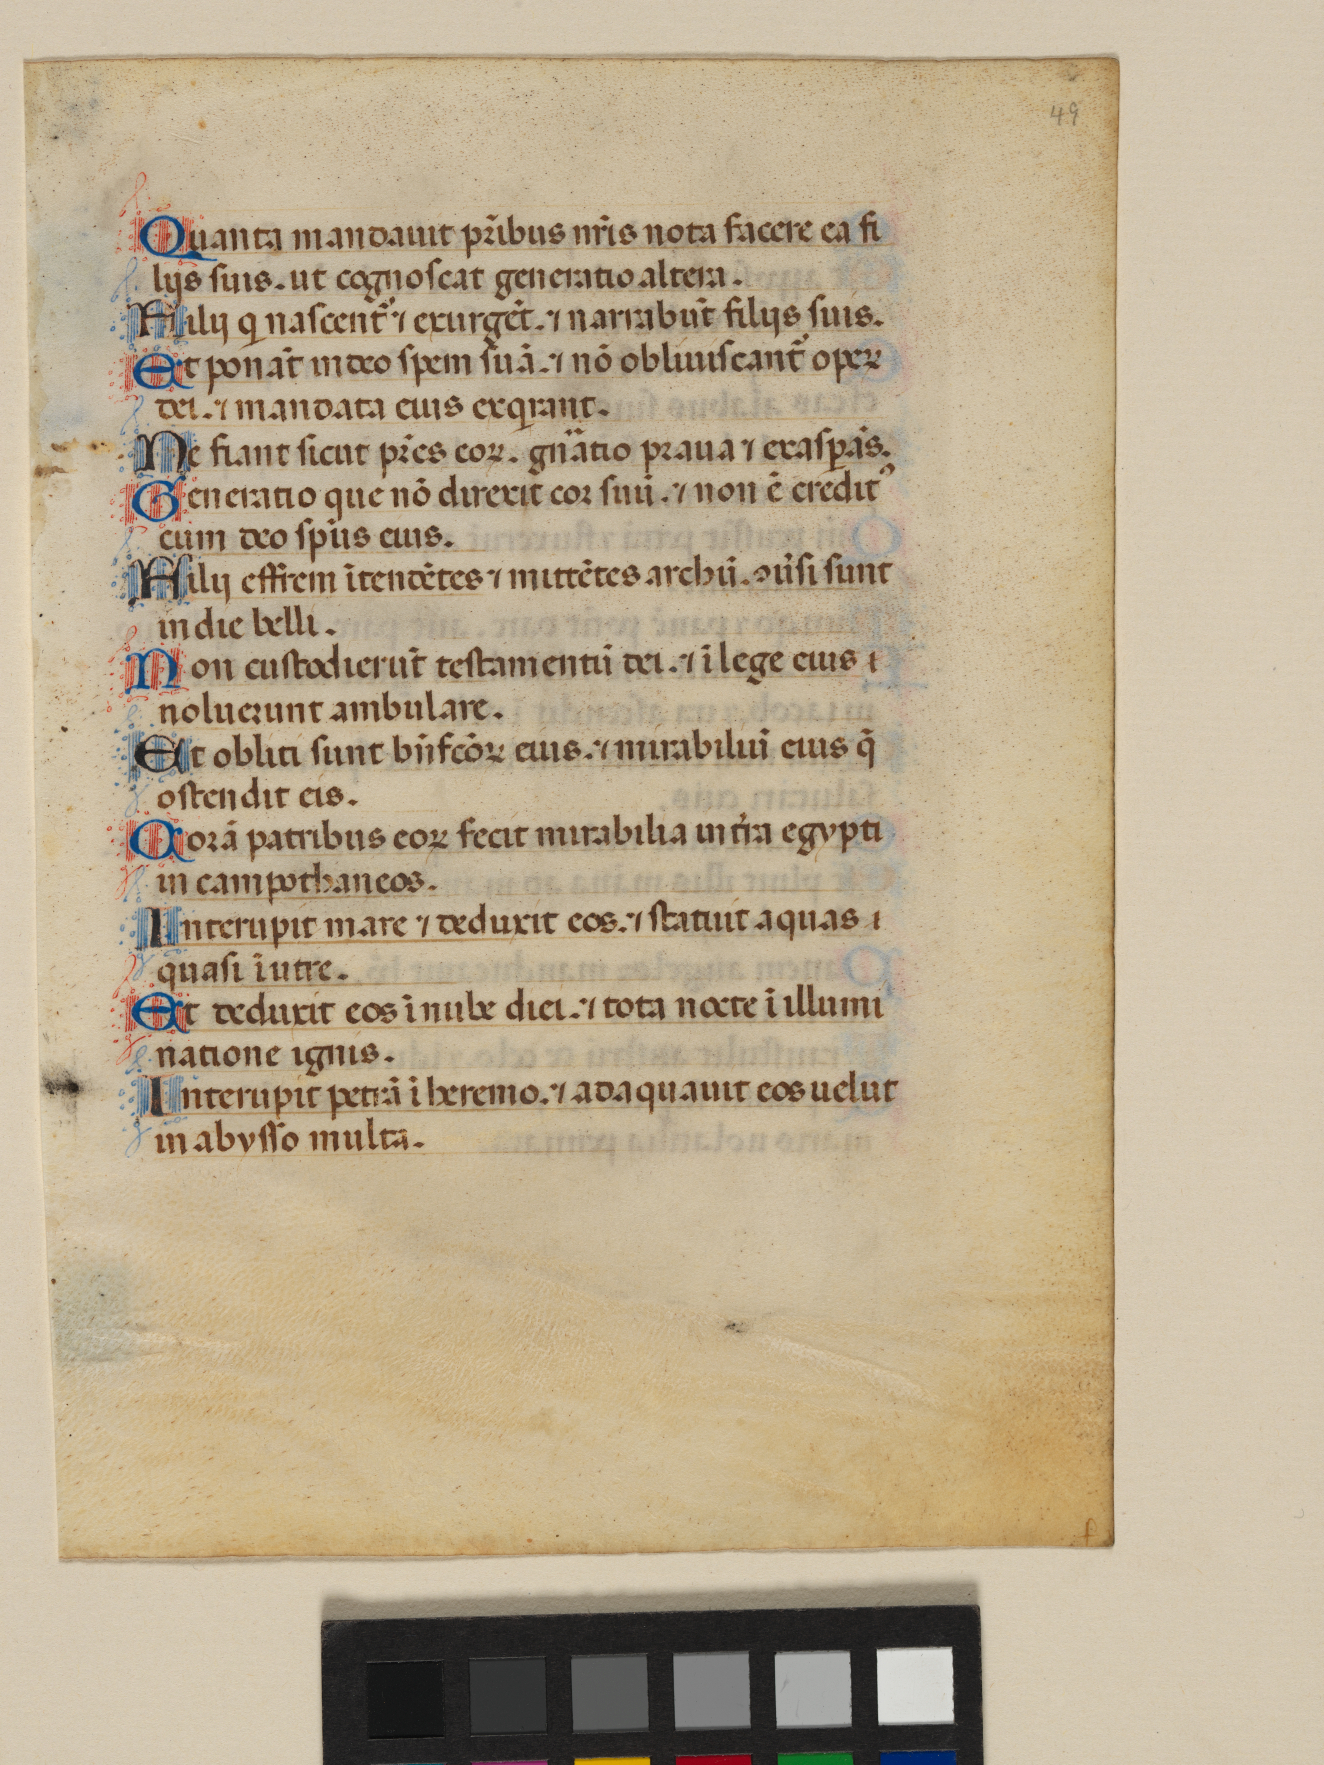 49
Quanta mandauit pr̃ibus nr̃is nota facere ea fi
lijs suis. ut cognoscat generatio altera.
Filij q nascent̃ ⁊ exurgẽt. ⁊ narrabũt filijs suis.
Et ponãt in deo spem suã. ⁊ nõ obliuiscant̃ operꝝ
dei. ⁊ mandata eius exqrant.
Ne fiant sicut pr̃es eoꝝ. gñatio praua ⁊ exaspãs.
Generatio que nõ direxit cor suũ. ⁊ non ẽ credit᾽
cum deo spũs eius.
Filij effrem ĩtendẽtes ⁊ mittẽtes archũ. ꝯũsi sunt
in die belli.
Non custodierũt testamentũ dei. ⁊ ĩ lege eius ı
noluerunt ambulare.
Et obliti sunt bñfcõꝝ eius. ⁊ mirabiliuĩ eius q̃
ostendit eis.
Corã patribus eoꝝ fecit mirabilia in tr̃a egypti
in campo thaneos.
Interupit mare ⁊ deduxit eos. ⁊ statuit aquas ı
quasi ĩ utre.
Et deduxit eos ĩ nube diei. ⁊ tota nocte ĩ illumi
natione ignis.
Interupit petrã ĩ heremo. ⁊ adaquauit eos uelut
in abysso multa.